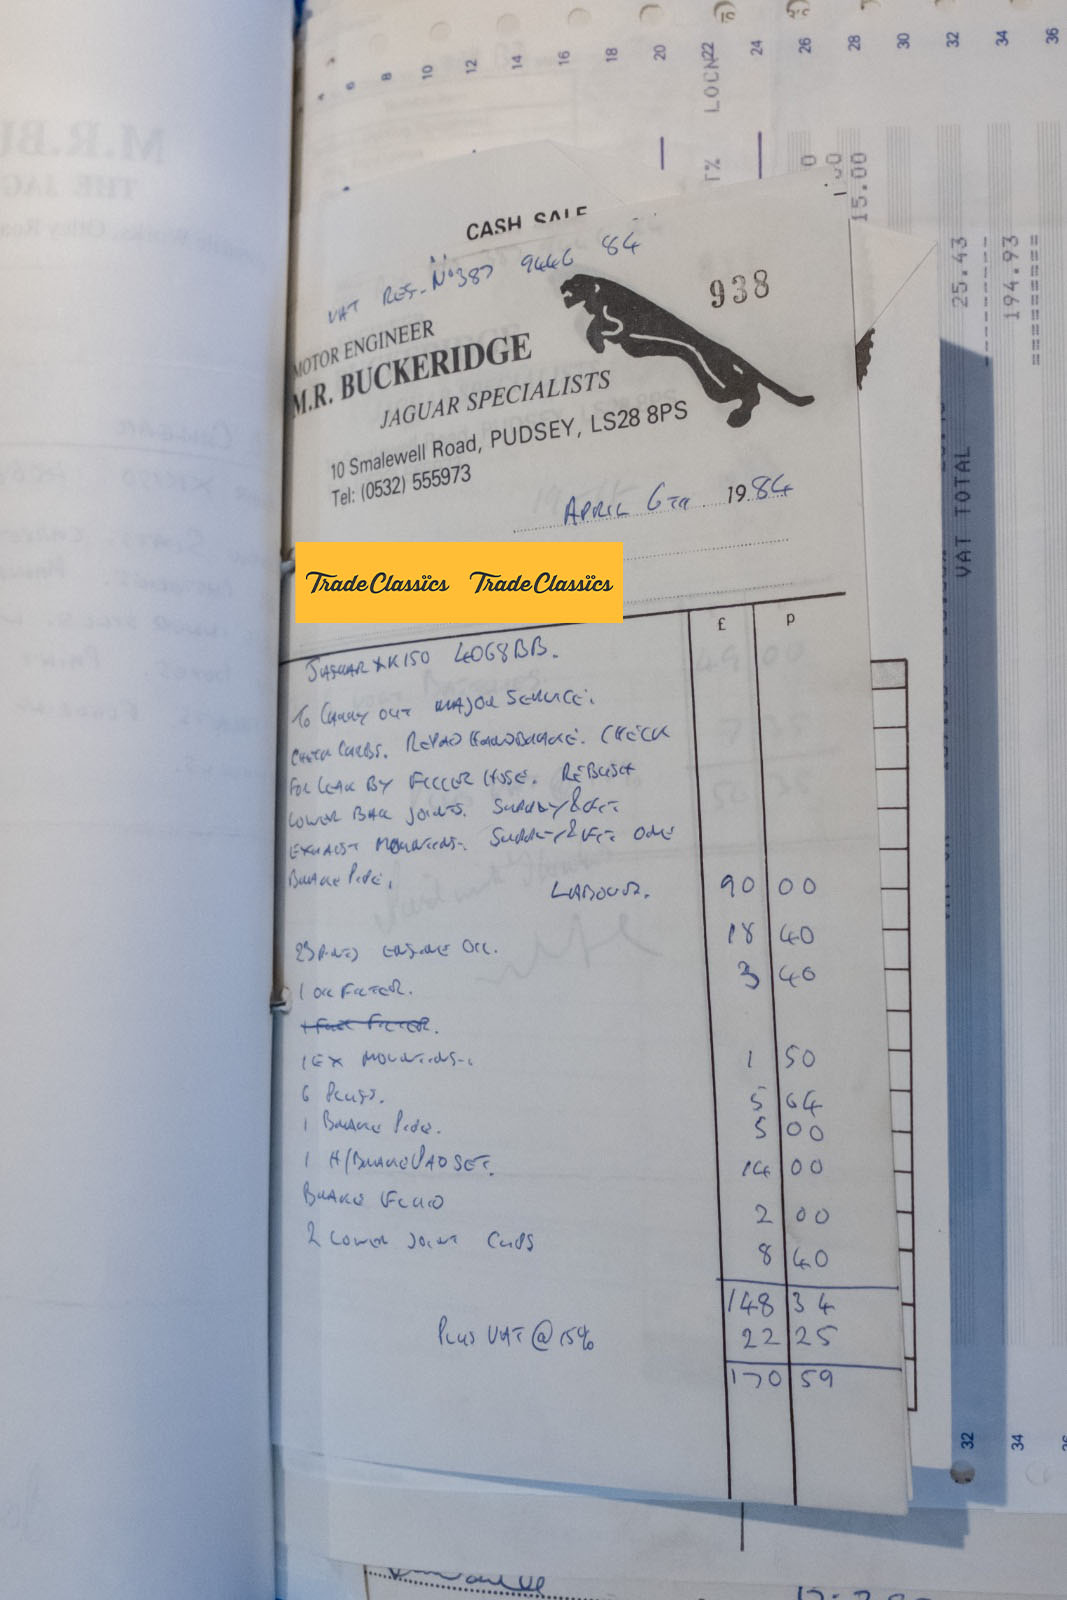 4 6 8 10 12 14 16 18 20 22 24 26 28 30 32 34 36
LOCN
T%
15.00
25.43
194.93
VAT TOTAL
CASH SALE
VAT REG. No 387 9446 84
938
MOTOR ENGINEER
M.R. BUCKERIDGE
JAGUAR SPECIALISTS
10 Smalewell Road, PUDSEY, LS28 8PS
Tel: (0532) 555973
APRIL 6TH 1984
TradeClassics TradeClassics
£ p
JAGUAR XK150 4068BB.
TO CARRY OUT MAJOR SERVICE.
CHECK CARBS. REPAD HANDBRAKE. CHECK
FOR LEAK BY FILLER HOSE. REBUSH
LOWER BALL JOINTS. SUPPLY & FIT
EXHAUST MOUNTINGS. SUPPLY & FIT ONE
BRAKE PIPE.
LABOUR. 90 00
23 PINTS ENGINE OIL. 18 40
1 OIL FILTER. 3 40
1 FUEL FILTER.
1 EX MOUNTINGS. 1 50
6 PLUGS. 5 64
1 BRAKE PIPE. 5 00
1 H/BRAKE PAD SET. 14 00
BRAKE FLUID 2 00
2 LOWER JOINT CUPS 8 40
148 34
PLUS VAT @ 15% 22 25
170 59
32 34